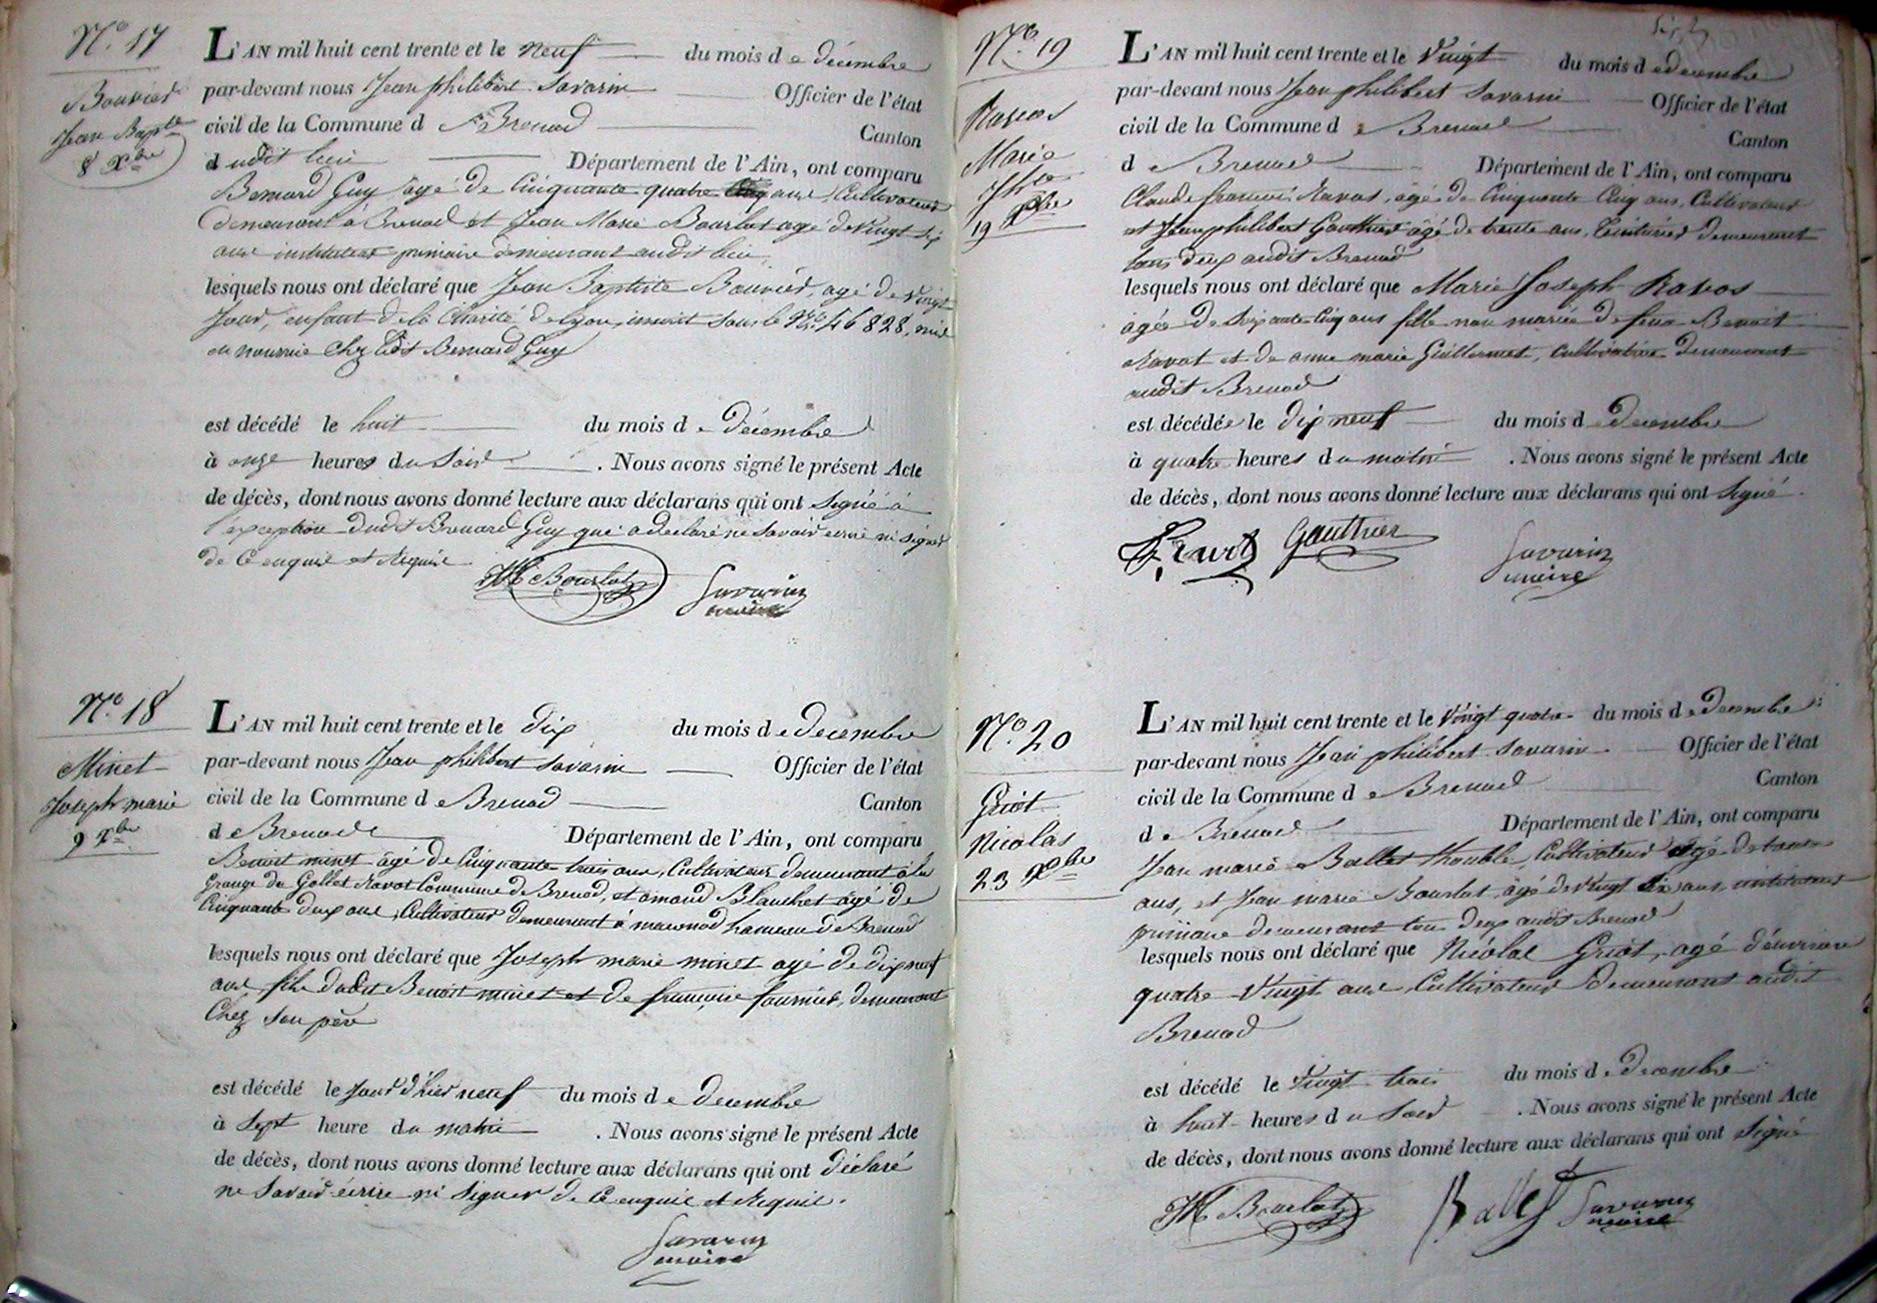 N.o 17
Bouvier
Jean Bapte
8 Xbre
L'AN mil huit cent trente et le neuf du mois de décembre
par-devant nous Jean philibert Savarin Officier de l'état
civil de la Commune d Brenod Canton
dudit lieu Département de l'Ain, ont comparu
Bernard Guy âgé de Cinquante quatre ans Cultivateur
demeurant à Brenod et Jean Marie Bourlot agé de vingt six
ans instituteur primaire demeurant audit lieu
lesquels nous ont déclaré que Jean Baptiste Bouvier, agé de vingt
jour, enfant de la Charité de Lyon, inscrit sous le No 46828, mis
en nourrice chez ledit Bernard Guy
est décédé le huit du mois de décembre
à onze heures du Soir. Nous avons signé le présent Acte
de décès, dont nous avons donné lecture aux déclarans qui ont Signé à
l'exception dudit Bernard Guy qui a déclaré ne Savoir écrire ni signer
de ce enquis et Requis
JM Bourlot Savarin
maire
N.o 18
Minet
Joseph marie
9 Xbre
L'AN mil huit cent trente et le dix du mois de decembre
par-devant nous Jean philibert Savarin Officier de l'état
civil de la Commune de Brenod Canton
de Brenod Département de l'Ain, ont comparu
Benoit minet âgé de Cinquante trois ans, Cultivateur demeurant à la
Grange du Gollet Ravot Commune de Brenod, et amand Blanchet âgé de
Cinquante deux ans, Cultivateur demeurant à macconod hameau de Brenod
lesquels nous ont déclaré que Joseph marie minet agé de dix neuf
ans fils dudit Benoit minet et de françoise fournier, demeurant
Chez Son père
est décédé le jour d'hier neuf du mois de decembre
à Sept heure du matin. Nous avons signé le présent Acte
de décès, dont nous avons donné lecture aux déclarans qui ont déclaré
ne Savoir écrire ni Signer de Ce enquis et Requis.
Savarin
maire
N.o 19
Ravos
Marie
Jphe
19 Xbre
L'AN mil huit cent trente et le Vingt du mois de decembre
par-devant nous Jean philibert Savarin Officier de l'état
civil de la Commune de Brenod Canton
de Brenod Département de l'Ain, ont comparu
Claude francois Ravot, agé de Cinquante Cinq ans, Cultivateur
et Jean philibert Gauthier âgé de trente ans, teinturier demeurant
tous deux audit Brenod
lesquels nous ont déclaré que Marie Joseph Ravos
âgée de Soixante Cinq ans fille non mariée de feux Benoit
Ravat et de anne marie Guillermet, Cultivatrice demeurant
audit Brenod
est décédée le dix neuf du mois de decembre
à quatre heures du matin. Nous avons signé le présent Acte
de décès, dont nous avons donné lecture aux déclarans qui ont Signé.
Gauthier Savarin
maire
N.o 20
Griot
Nicolas
23 Xbre
L'AN mil huit cent trente et le Vingt quatre du mois de Decembre
par-devant nous Jean philibert Savarin Officier de l'état
civil de la Commune de Brenod Canton
de Brenod Département de l'Ain, ont comparu
Jean marie Ballet Cultivateur âgé de trente
ans, et Jean marie Bourlot âgé de Vingt Six ans, instituteur
primaire demeurant tous deux audit Brenod
lesquels nous ont déclaré que Nicolas Griot, agé d'environ
quatre Vingt ans Cultivateur demeurant audit
Brenod
est décédé le Vingt trois du mois de decembre
à huit heures du Soir. Nous avons signé le présent Acte
de décès, dont nous avons donné lecture aux déclarans qui ont Signé
JM Bourlot Ballet Savarin
maire